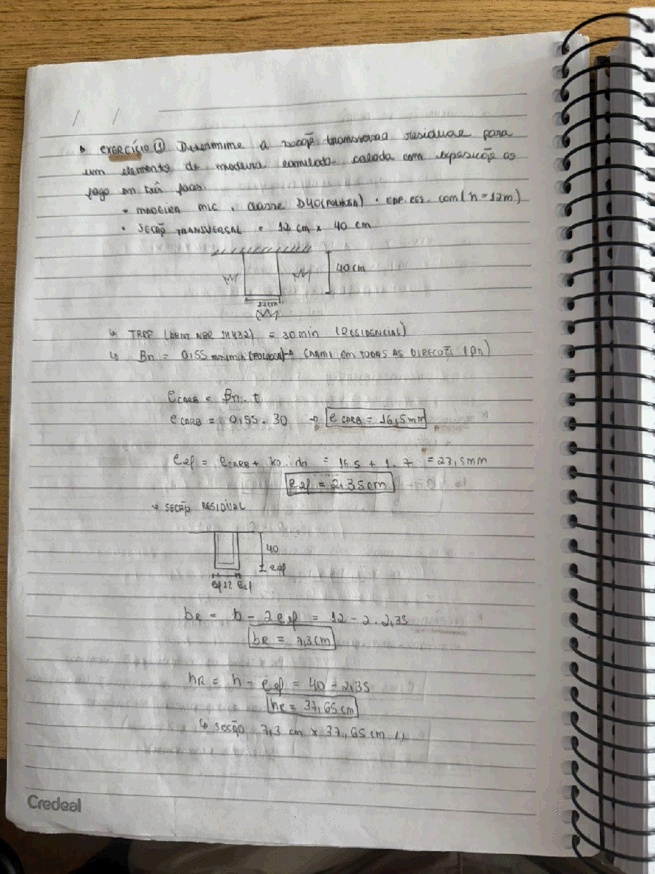 / /
EXERCÍCIO ① Determine a seção transversal residual para
um elemento de madeira serrada com exposição ao
fogo em três faces.
• MADEIRA MLC, classe D40 (FOLHOSA) • EDF. RES. com (h = 12m)
• SEÇÃO TRANSVERSAL = 12 cm x 40 cm
40 cm
12cm
↳ TRRF (ABNT NBR 14432) = 30 min (RESIDÊNCIAS)
↳ Bn = 0,55 mm/min (FOLHOSA) → CHAMA EM TODAS AS DIREÇÕES (βn)
e CARB = βn . t
e CARB = 0,55 . 30 → e CARB = 16,5mm
e ef = e CARB + k0 . d0 = 16,5 + 1 . 7 = 23,5mm
e ef = 2,35cm
↳ SEÇÃO RESIDUAL
40
eef
eef 12 eef
bR = b - 2 eef = 12 - 2 . 2,35
bR = 7,3cm
hR = h - eef = 40 - 2,35
hR = 37,65cm
↳ SEÇÃO 7,3 cm x 37,65 cm //
Credeal